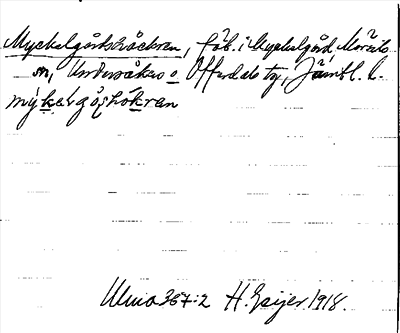 Myckelgårdshöckren, fäb. i Myckelgård, Mörsils
sn, Undersåkers o Offerdals tg, Jämtl. l.
mýkelgåṣhókran
Ulma 367:2 H. Geijer 1918.